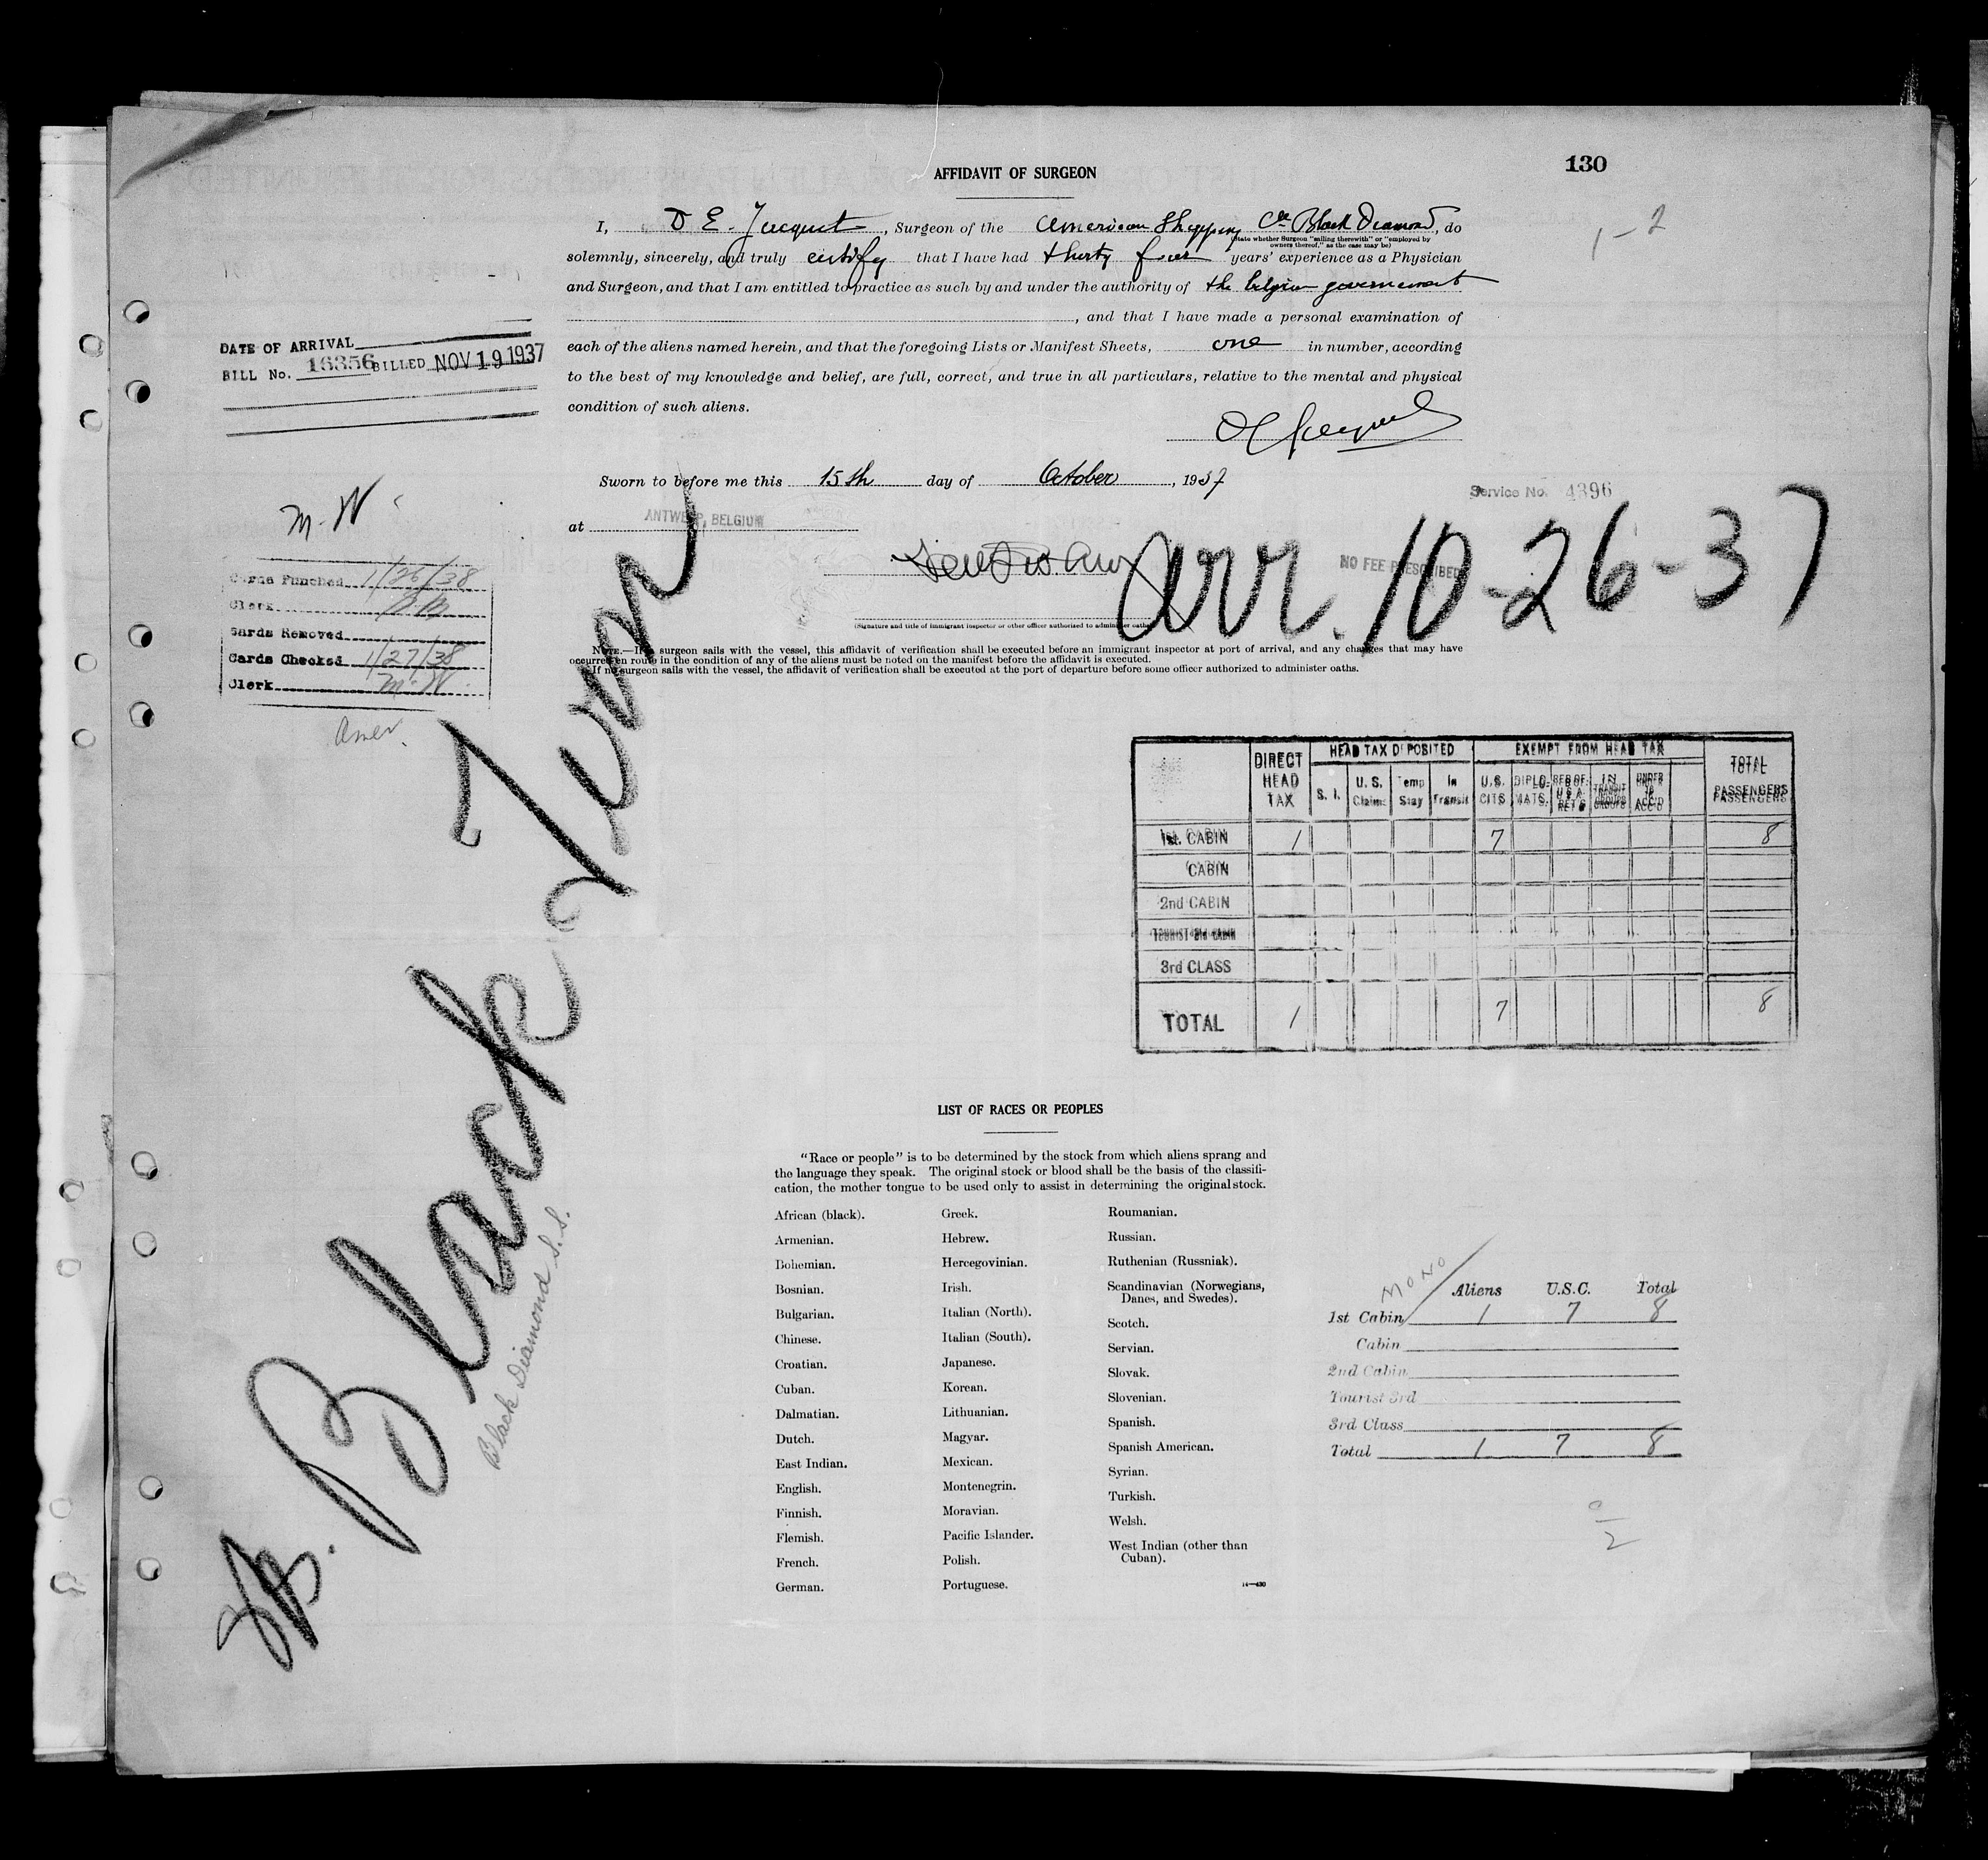 130
AFFIDAVIT OF SURGEON
1-2
I, D E. Jacquet, Surgeon of the American Shipping Co Black Diamond, do
(State whether Surgeon "sailing therewith" or "employed by
owners thereof," as the case may be)
solemnly, sincerely, and truly certify that I have had thirty four years' experience as a Physician
and Surgeon, and that I am entitled to practice as such by and under the authority of the belgian governement
, and that I have made a personal examination of
each of the aliens named herein, and that the foregoing Lists or Manifest Sheets, one in number, according
to the best of my knowledge and belief, are full, correct, and true in all particulars, relative to the mental and physical
condition of such aliens.
DATE OF ARRIVAL
BILL No. 16356 BILLED NOV 19 1937
Sworn to before me this 15th day of October, 1937
at ANTWERP, BELGIUM
Service No. 4396
NO FEE PRESCRIBED
arr. 10-26-37
(Signature and title of immigrant inspector or other officer authorized to administer oaths)
NOTE.—If a surgeon sails with the vessel, this affidavit of verification shall be executed before an immigrant inspector at port of arrival, and any changes that may have
occurred en route in the condition of any of the aliens must be noted on the manifest before the affidavit is executed.
If no surgeon sails with the vessel, the affidavit of verification shall be executed at the port of departure before some officer authorized to administer oaths.
M-W
Cards Punched 1/26/38
Clerk
Cards Removed
Cards Checked 1/27/38
Clerk M-W
Amer.
SS. Black Tern
Black Diamond S.S.
DIRECT HEAD TAX
HEAD TAX DEPOSITED
EXEMPT FROM HEAD TAX
TOTAL PASSENGERS
S. I. U. S. Claims Temp Stay In Transit U.S. CITS DIPLO-MATS. RES OF U S A RET'G IN TRANSIT GROUPS UNDER 16 ACC'D
1st. CABIN 1 7 8
CABIN
2nd CABIN
TOURIST 3rd CABIN
3rd CLASS
TOTAL 1 7 8
LIST OF RACES OR PEOPLES
"Race or people" is to be determined by the stock from which aliens sprang and
the language they speak. The original stock or blood shall be the basis of the classifi-
cation, the mother tongue to be used only to assist in determining the original stock.
African (black).
Armenian.
Bohemian.
Bosnian.
Bulgarian.
Chinese.
Croatian.
Cuban.
Dalmatian.
Dutch.
East Indian.
English.
Finnish.
Flemish.
French.
German.
Greek.
Hebrew.
Hercegovinian.
Irish.
Italian (North).
Italian (South).
Japanese.
Korean.
Lithuanian.
Magyar.
Mexican.
Montenegrin.
Moravian.
Pacific Islander.
Polish.
Portuguese.
Roumanian.
Russian.
Ruthenian (Russniak).
Scandinavian (Norwegians,
Danes, and Swedes).
Scotch.
Servian.
Slovak.
Slovenian.
Spanish.
Spanish American.
Syrian.
Turkish.
Welsh.
West Indian (other than
Cuban).
14—430
MONO
Aliens U.S.C. Total
1st Cabin 1 7 8
Cabin
2nd Cabin
Tourist 3rd
3rd Class
Total 1 7 8